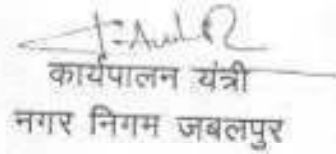 कार्यपालन यंत्री
नगर निगम जबलपुर